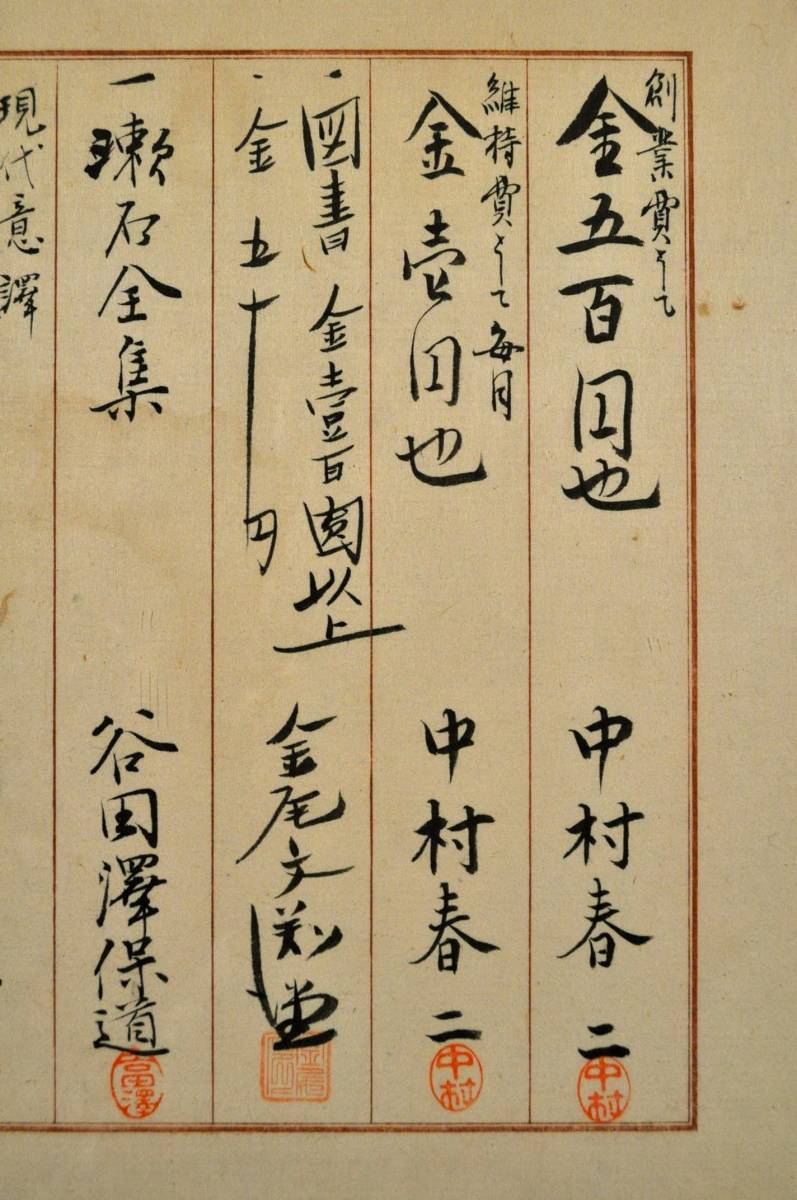 創業費として
金五百円也 中村春二
中村
維持費として毎月
金壱円也 中村春二
中村
一図書 金壹百圓以上
一金五十円
金尾文淵堂
一漱石全集 谷田澤保道
現代意譯